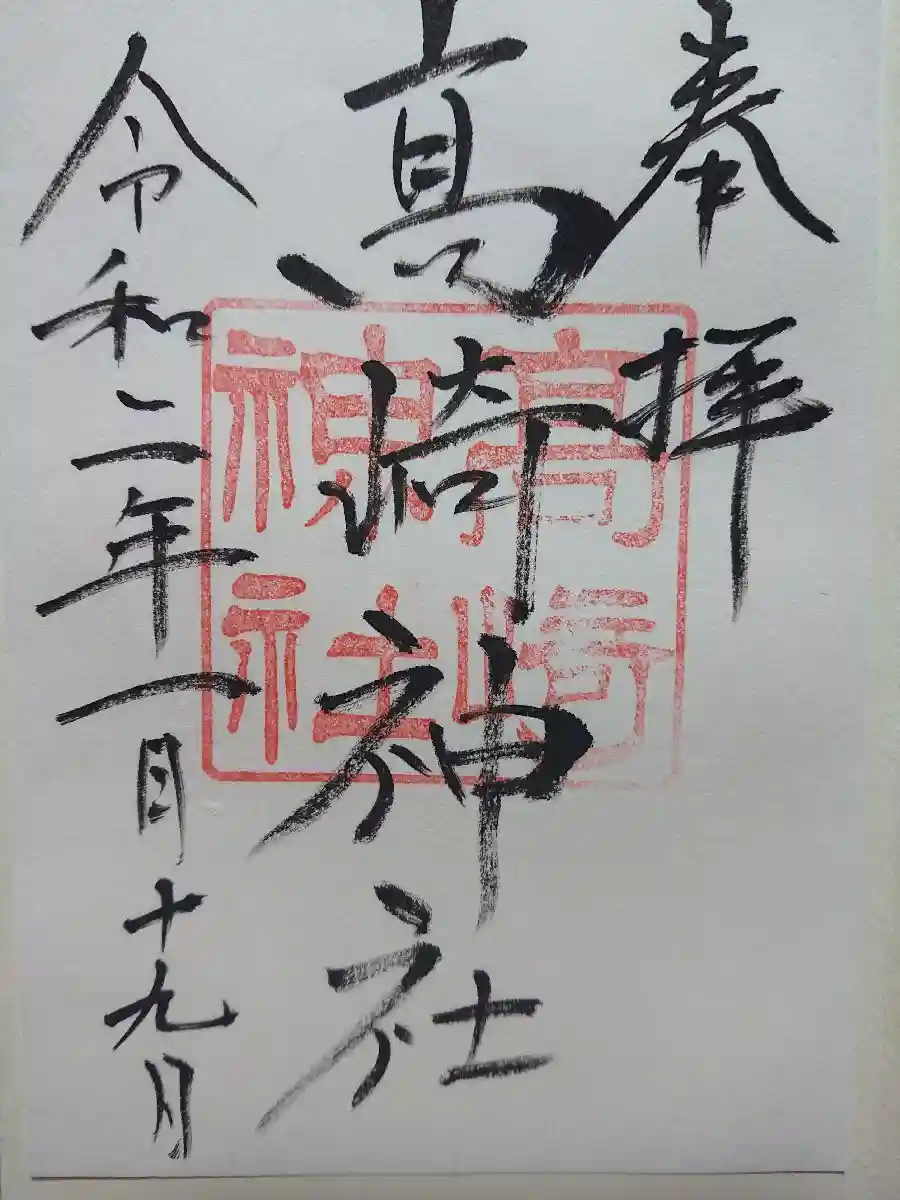 奉拝
髙崎神社
令和二年一月十九日
高崎
神社